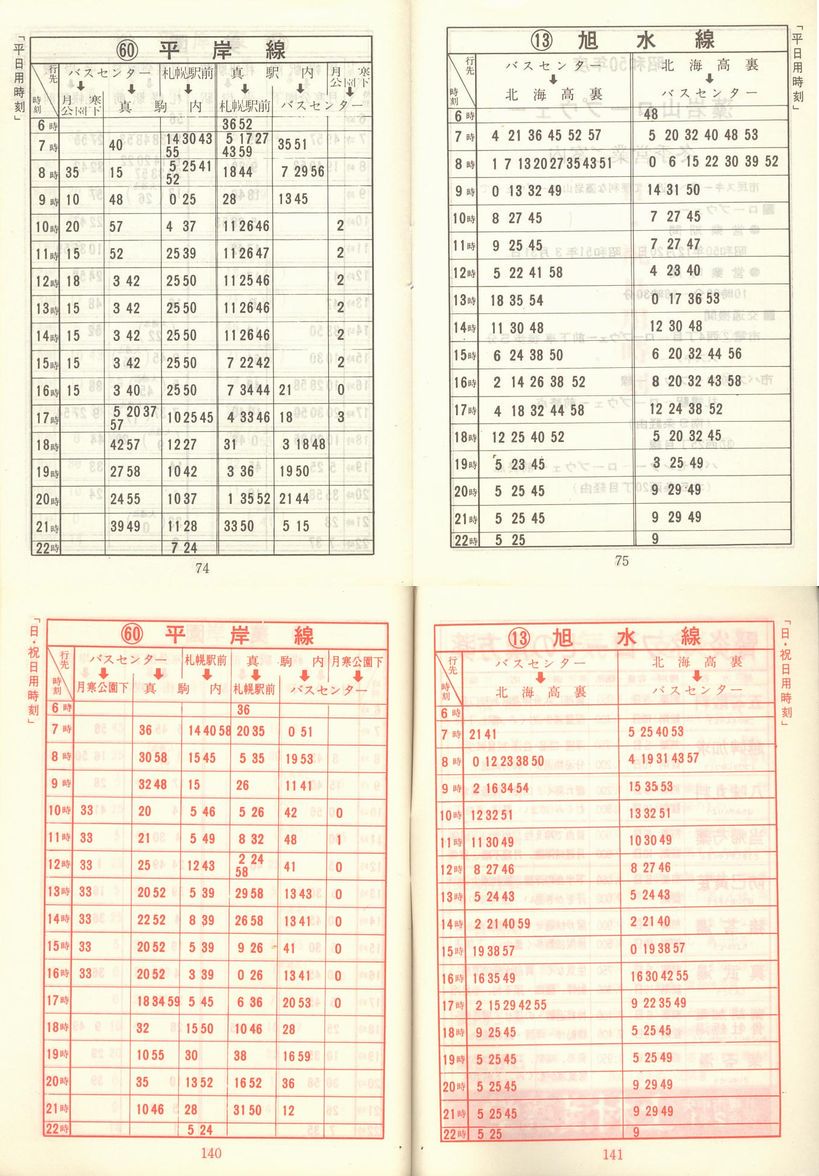 「平日用時刻」
⑥⓪ 平岸線
行先 バスセンター 札幌駅前 真駒内 月寒公園下
時刻 月寒公園下 真駒内 札幌駅前 バスセンター
6時 36 52
7時 40 14 30 43 55 5 17 27 43 59 35 51
8時 35 15 5 25 41 52 18 44 7 29 56
9時 10 48 0 25 28 13 45
10時 20 57 4 37 11 26 46 2
11時 15 52 25 39 11 26 47 2
12時 18 3 42 25 50 11 25 46 2
13時 15 3 42 25 50 11 26 46 2
14時 15 3 42 25 50 11 26 46 2
15時 15 3 42 25 50 7 22 42 2
16時 15 3 40 25 50 7 34 44 21 0
17時 5 20 37 57 10 25 45 4 33 46 18 3
18時 42 57 12 27 31 3 18 48
19時 27 58 10 42 3 36 19 50
20時 24 55 10 37 1 35 52 21 44
21時 39 49 11 28 33 50 5 15
22時 7 24
74
⑬ 旭水線
「平日用時刻」
行先 バスセンター 北海高裏
時刻 北海高裏 バスセンター
6時 48
7時 4 21 36 45 52 57 5 20 32 40 48 53
8時 1 7 13 20 27 35 43 51 0 6 15 22 30 39 52
9時 0 13 32 49 14 31 50
10時 8 27 45 7 27 45
11時 9 25 45 7 27 47
12時 5 22 41 58 4 23 40
13時 18 35 54 0 17 36 53
14時 11 30 48 12 30 48
15時 6 24 38 50 6 20 32 44 56
16時 2 14 26 38 52 8 20 32 43 58
17時 4 18 32 44 58 12 24 38 52
18時 12 25 40 52 5 20 32 45
19時 5 23 45 3 25 49
20時 5 25 45 9 29 49
21時 5 25 45 9 29 49
22時 5 25 9
75
「日・祝日用時刻」
⑥⓪ 平岸線
行先 バスセンター 札幌駅前 真駒内 月寒公園下
時刻 月寒公園下 真駒内 札幌駅前 バスセンター
6時 36
7時 36 14 40 58 20 35 0 51
8時 30 58 15 45 5 35 19 53
9時 32 48 15 26 11 41
10時 33 20 5 46 5 26 42 0
11時 33 21 5 49 8 32 48 1
12時 33 25 12 43 2 24 58 41 0
13時 33 20 52 5 39 29 58 13 43 0
14時 33 22 52 8 39 26 58 13 41 0
15時 33 20 52 5 39 9 26 41 0
16時 33 20 52 3 39 0 26 13 41 0
17時 18 34 59 5 45 6 36 20 53 0
18時 32 15 50 10 46 28
19時 10 55 30 38 16 59
20時 35 13 52 16 52 36
21時 10 46 28 31 50 12
22時 5 24
140
⑬ 旭水線
「日・祝日用時刻」
行先 バスセンター 北海高裏
時刻 北海高裏 バスセンター
6時
7時 21 41 5 25 40 53
8時 0 12 23 38 50 4 19 31 43 57
9時 2 16 34 54 15 35 53
10時 12 32 51 13 32 51
11時 11 30 49 10 30 49
12時 8 27 46 8 27 46
13時 5 24 43 5 24 43
14時 2 21 40 59 2 21 40
15時 19 38 57 0 19 38 57
16時 16 35 49 16 30 42 55
17時 2 15 29 42 55 9 22 35 49
18時 9 25 45 5 25 45
19時 5 25 45 5 25 49
20時 5 25 45 9 29 49
21時 5 25 45 9 29 49
22時 5 25 9
141